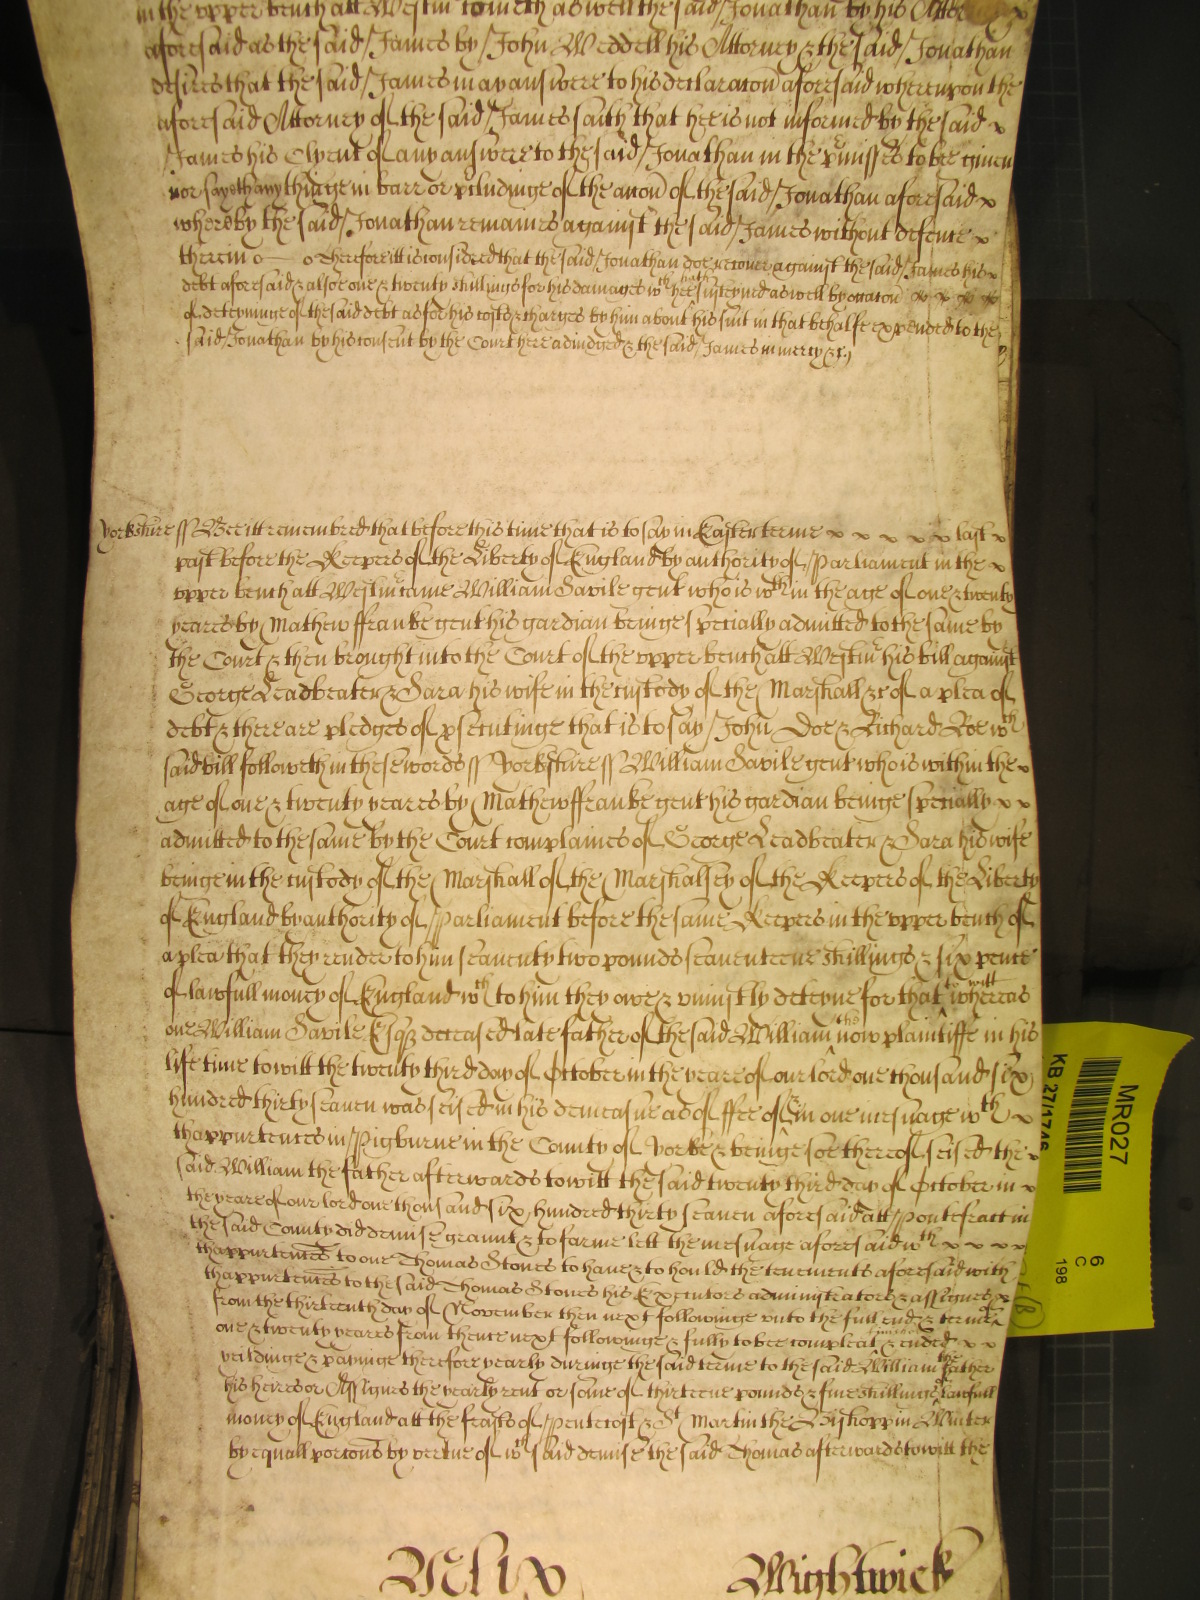 in the upper bench att Westm̃ cometh as well the said Jonathan by his Attor
aforesaid as the said James by John Weddell his Attorney & the said Jonathan
desires that the said James may answere to his declaracon aforesaid whereupon the
aforesaid Attorney of the said James saith that hee is not informed by the said x
James his Clyent of any answere to the said Jonathan in the p̃misses to bee given
nor sayeth any thinge in barr or p̃cludinge of the accon of the said Jonathan aforesaid x
whereby the said Jonathan remaines against the said James without defence x
therein o— o Therefore itt is considered that the said Jonathan doe recover against the said James his x
debt aforesaid & alsoe one & twenty shillings for his damages wᶜʰ hee hath susteyned as well by occacon x x x x
of deteyninge of the said debt as for his costs & charges by him about his suit in that behalfe expended to the
said Jonathan by his consent by the Court here adiudged & the said James in mercy &c.
Yorkshire ss Bee itt remembred that before this time that is to say in Easter terme x x x x x last x
past before the Keepers of the Liberty of England by authority of Parliament in the x
upper bench att Westm̃ came William Savile gent who is wᵗʰin the age of one & twenty
yeares by Mathew ffranke gent his gardian beinge specially admitted to the same by
the Court & then brought into the Court of the upper bench att Westm̃ his bill against
George Leadbeater & Sara his wife in the custody of the Marshall &c of a plea of
debt & there are pledges of p̱secutinge that is to say John Doe & Richard Roe wᶜʰ
said bill followeth in these words ss Yorkshire ss William Savile gent who is within the x
age of one & twenty yeares by Mathew ffranke gent his gardian beinge specially x x
admitted to the same by the Court complaines of George Leadbeater & Sara his wife
beinge in the custody of the Marshall of the Marshalsey of the Keepers of the Liberty
of England by authority of Parliament before the same Keepers in the upper bench of
a plea that they render to him seaventy two pounds seaventeene shillings & six pence
of lawfull money of England wᶜʰ to him they owe & uniustly deteyne for that to witt whereas
one William Savile Esqʒ deceased late father of the said William the now plaintiffe in his
life time to witt the twenty third day of October in the yeare of our lord one thousand six
hundred thirty seaven was seised in his demeasne as of ffee of & in one mesuage wᵗʰ x
thappurtences in Pigburne in the County of Yorke & beinge soe thereof seised the x
said William the father afterwards to witt the said twenty third day of October in x
the yeare of our lord one thousand six hundred thirty seaven aforesaid att Pontefract in
the said County did demise graunt & to farme lett the mesuage aforesaid wᵗʰ x x x x
thappurtences to one Thomas Stones to have & to hould the tenements aforesaid with
thappurtences to the said Thomas Stones his Executors administrators & assignes x
from the thirteenth day of November then next followinge unto the full end & terme of
one & twenty yeares from thence next followinge & fully to bee compleat & ended x x
yeildinge & payinge therefore yearly duringe the said terme to the said William the father
his heires or Assignes the yearly rent or some of thirteene pounds & five shillings of lawfull
money of England att the feasts of Pentecost & Sᵗ Martin the Bishopp in Winter
by equall porcons by vertue of wᶜʰ said demise the said Thomas afterwards to witt the
Wightwick
MR027
KB 27/1746
6
C
198